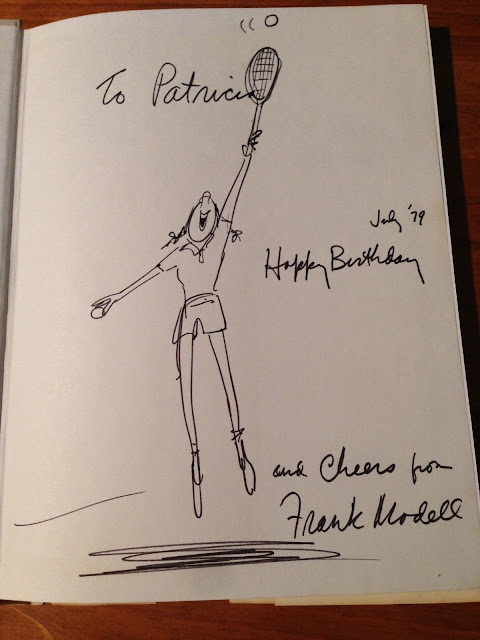 To Patricia
July '79
Happy Birthday
and Cheers from
Frank Modell